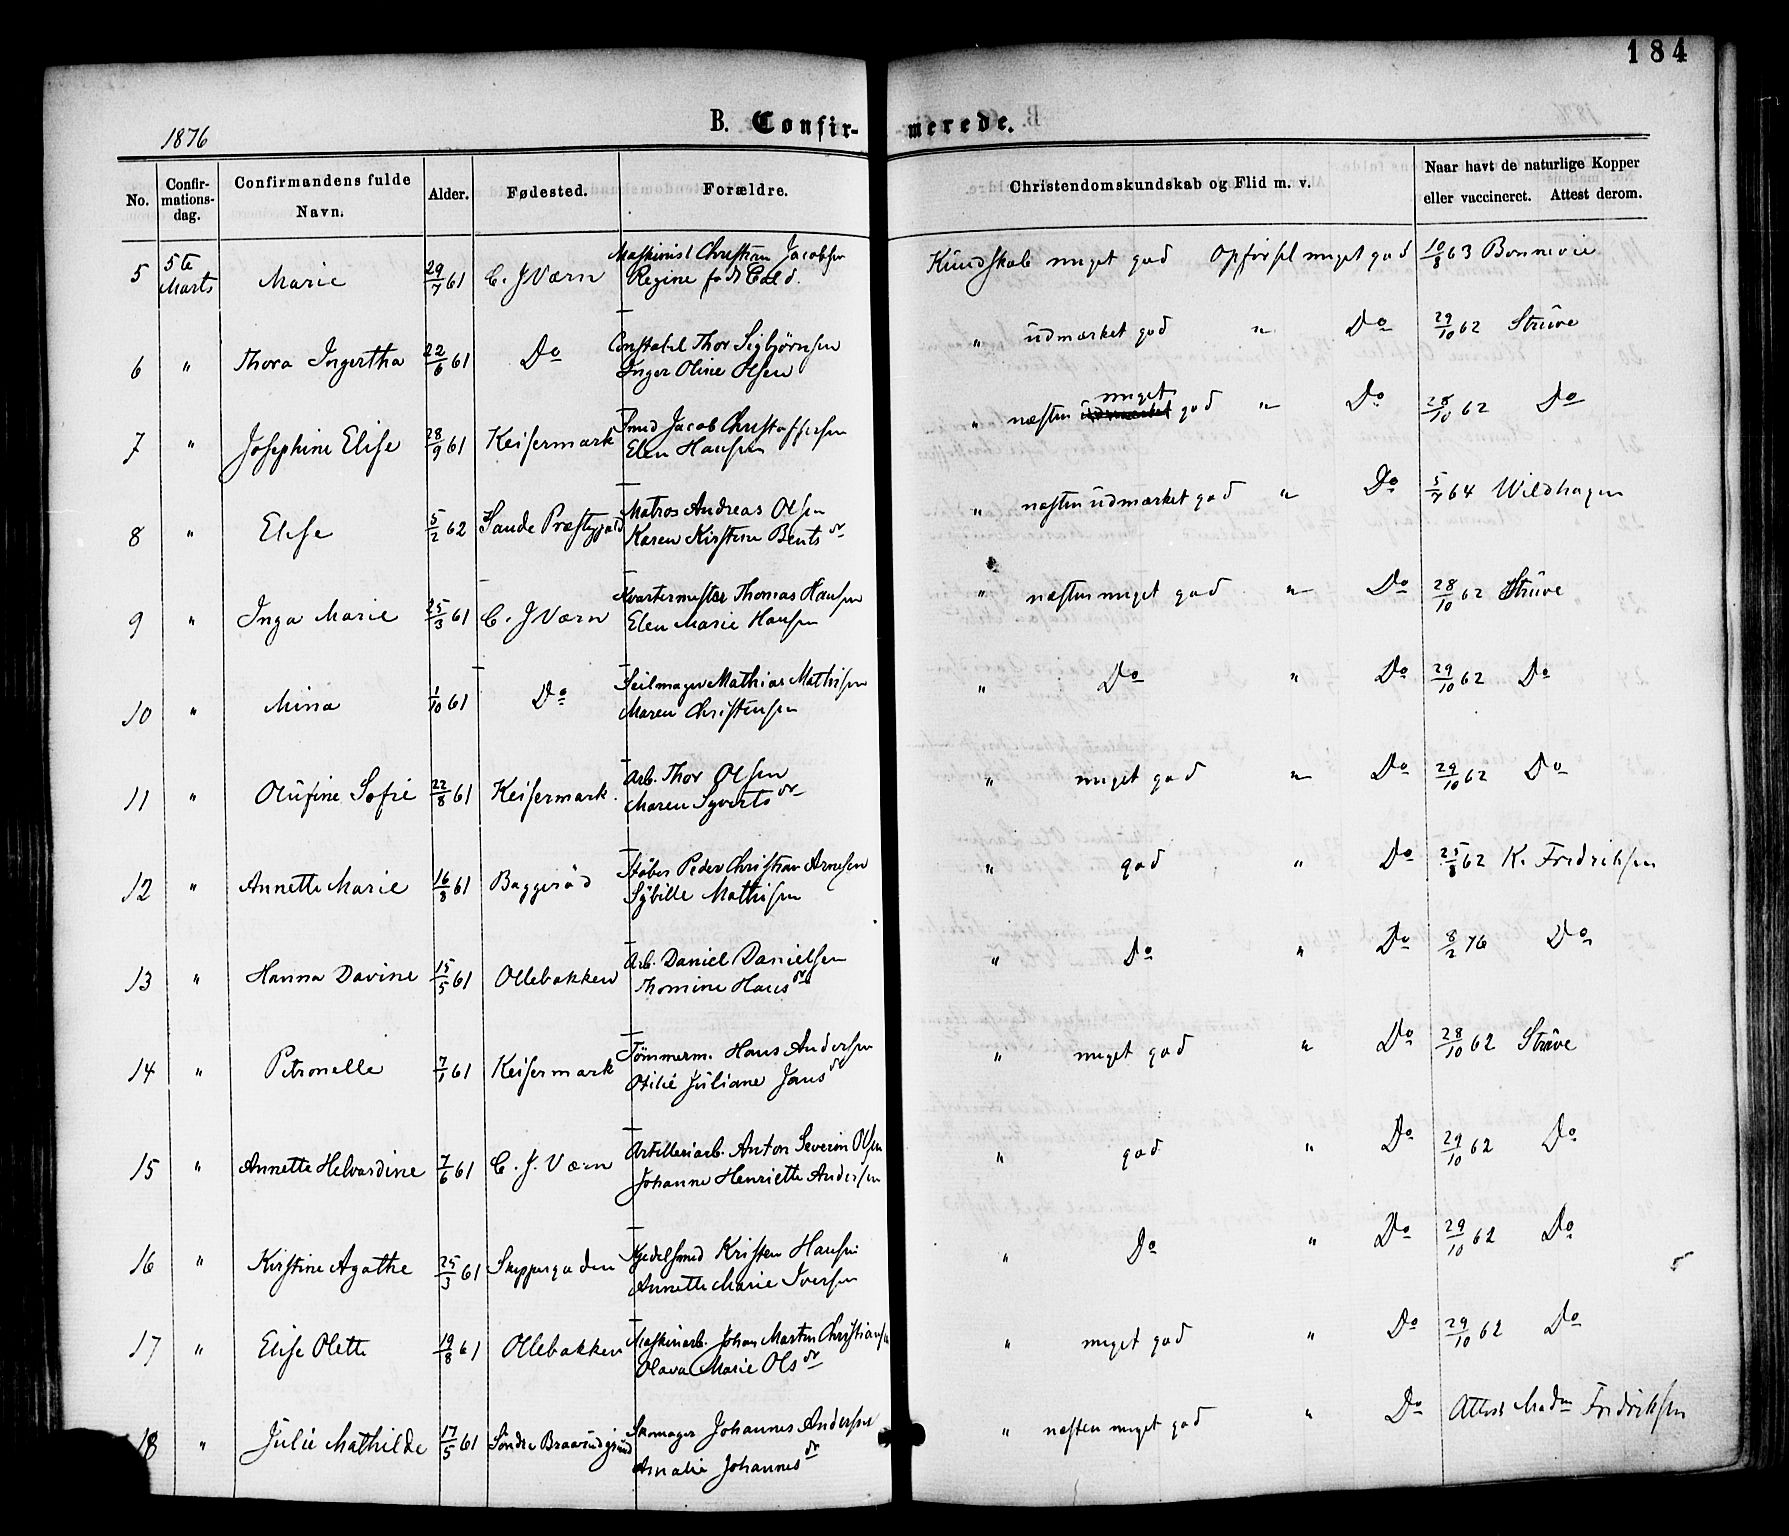 184
1876
B. Confir- merede.
No. Confir-mations-dag. Confirmandens fulde Navn. Alder. Fødested. Forældre. Christendomskundskab og Flid m. v. Naar havt de naturlige Kopper eller vaccineret. Attest derom.
5 5te Marts Marie 29/7 61 C. J. Værn Maskinist Christian Jacobsen Kundskab meget god Opførsel meget god 10/8 63 Bonnevie
Regine født
6 " Thora Ingertha 22/6 61 Do Constabel Thor Sigbjørnsen " udmærket god " Do 29/10 62 Strüve
Inger Oline Olsen
7 " Josephine Elise 28/9 61 Keisermark Smed Jacob Christoffersen " næsten meget god " Do 28/10 62 Do
Elen Hansen
8 " Elise 5/2 62 Sande Præstegjæld Matros Andreas Olsen " næsten udmærket god " Do 5/7 64 Wildhagen
Karen Kirstine Bentsdr
9 " Inga Marie 25/3 61 C. J. Værn Kvartermester Thomas Hansen " næsten meget god " Do 28/10 62 Strüve
Elen Marie Hansen
10 " Mina 1/10 61 Do Seilmager Mathias Mathisen " Do " Do 29/10 62 Do
Maren Christensen
11 " Olufine Sofie 22/8 61 Keisermark. Arb. Thor Olsen " meget god " Do 29/10 62 Do
Maren Syvertsdr
12 " Annette Marie 16/8 61 Baggerød Støber Peder Christian Arnesen " god " Do 25/8 62 K. Fredriksen
Sybille Mathisen
13 " Hanna Davine 15/5 61 Ollebakken Arb. Daniel Danielsen " Do " Do 8/2 76 Do
Thomine Hansdr
14 " Petronelle 7/1 61 Keisermark Tømmerm. Hans Andersen " meget god " Do 28/10 62 Strüve
Otilie Juliane Jansdr
15 " Annette Helvardine 7/6 61 C. J. Værn Artilleriarb. Anton Severin Olsen " god " Do 29/10 62 Do
Johanne Henriette Andersen
16 " Kirstine Agathe 25/3 61 Skippergaden Kjedelsmed Kristen Hansen " Do " Do 29/10 62 Do
Annette Marie Iversen
17 " Elise Olette 19/8 61 Ollebakken Maskinarb. Johan Martin Christiansen " meget god " Do 29/10 62 Do
Olava Marie Olsdr
18 " Julie Mathilde 17/5 61 Søndre Skomager Johannes Andersen " næsten meget god " Do Attest Madm Fredriksen
Amalie Johannesdr